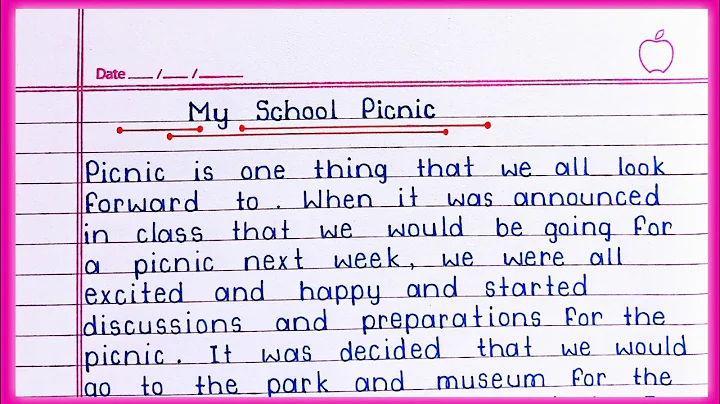 Date ___ /___ /_____
My School Picnic
Picnic is one thing that we all look
forward to. When it was announced
in class that we would be going for
a picnic next week, we were all
excited and happy and started
discussions and preparations for the
picnic. It was decided that we would
go to the park and museum for the